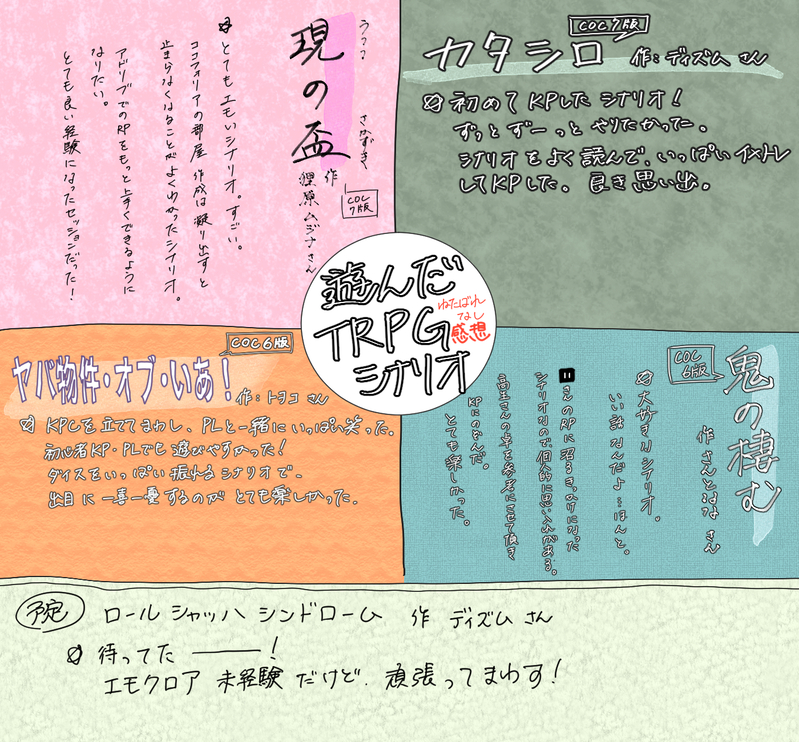 遊んだ
TRPG
シナリオ
ねたばれ
なし
感想
うつつ　さかずき
現の盃
作
狸原ムジナさん
COC
7版
とてもエモいシナリオ。すごい。
ココフォリアの部屋作成は凝り出すと
止まらなくなることがよくわかったシナリオ。
アドリブでのRPをもっと上手くできるように
なりたい。
とても良い経験になったセッションだった！
COC7版
カタシロ 作：ディズム さん
初めてKPしたシナリオ！
ずっとずーっとやりたかった。
シナリオをよく読んで、いっぱいイメトレ
してKPした。良き思い出。
COC6版
ヤバ物件・オブ・いあ！ 作：トヨコ さん
KPCを立ててまわし、PLと一緒にいっぱい笑った。
初心者KP・PLでも遊びやすかった！
ダイスをいっぱい振れるシナリオで、
出目に一喜一憂するのがとても楽しかった。
COC
6版
鬼の棲む
作 さんとはな さん
大好きなシナリオ。
いい話なんだよ…ほんと。
さんのRPに沼るきっかけになった
シナリオなので、個人的に思い入れがある。
さんの卓を参考にさせて頂き
KPにのぞんだ。
とても楽しかった。
予定 ロールシャッハシンドローム 作 ディズム さん
待ってた―――！
エモクロア未経験だけど、頑張ってまわす！